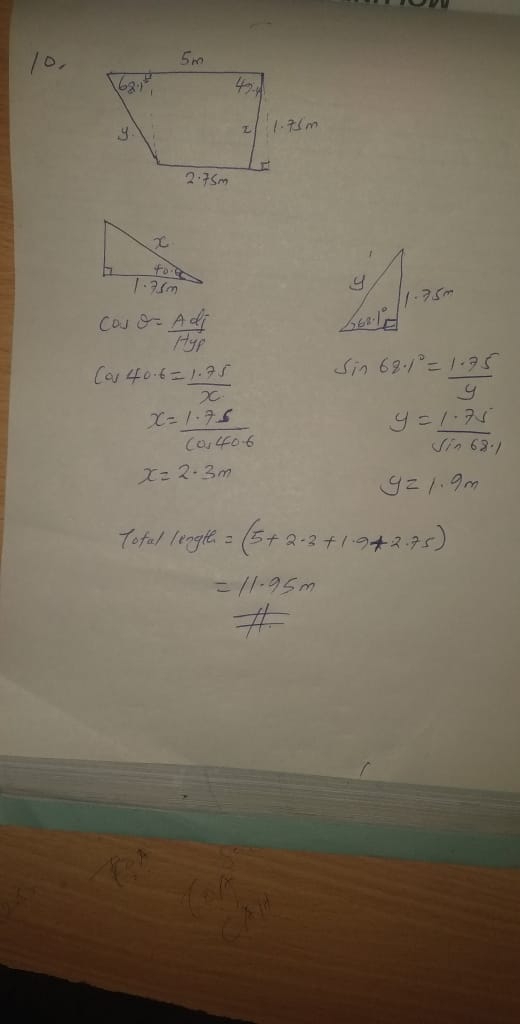 10.
5m
68.1°
y
z
1.75m
2.75m
x
40.6
1.75m
y
1.75m
68.1°
Cos θ = Adj
Hyp
Cos 40.6 = 1.75
x
x = 1.75
Cos 40.6
x = 2.3m
Sin 68.1° = 1.75
y
y = 1.75
Sin 68.1
y = 1.9m
Total length = (5 + 2.3 + 1.9 + 2.75)
= 11.95m